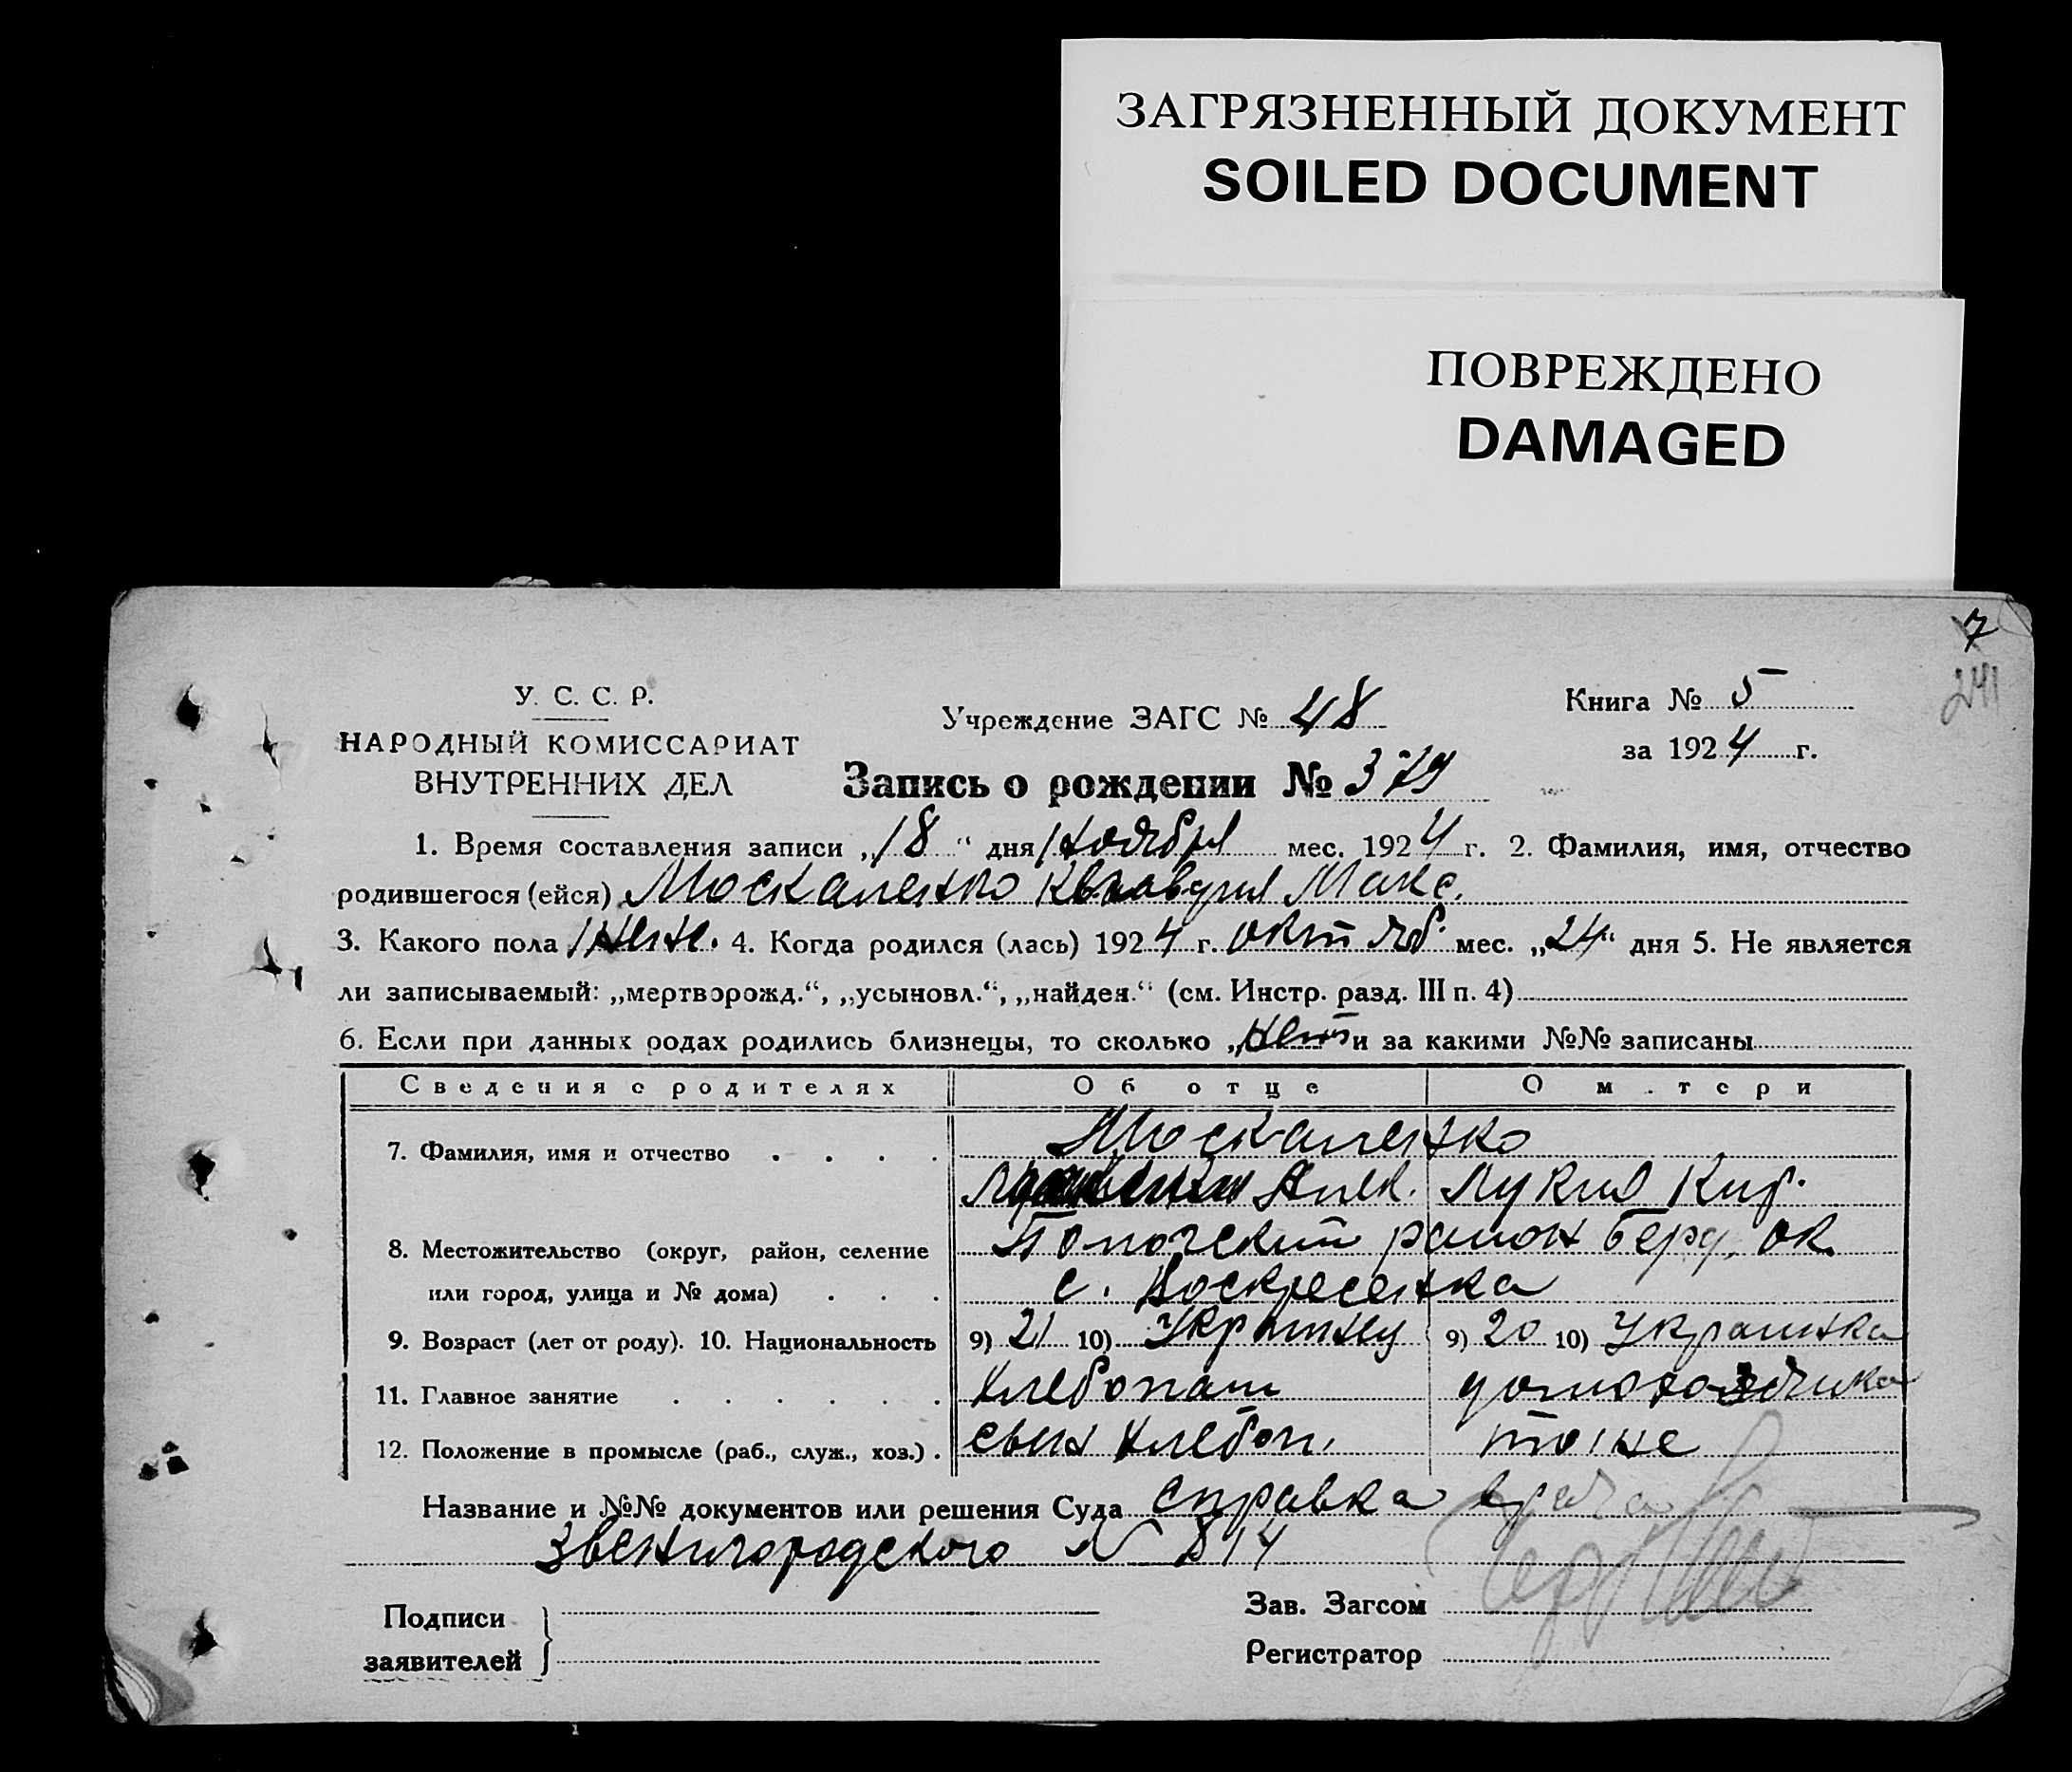 ЗАГРЯЗНЕННЫЙ ДОКУМЕНТ
SOILED DOCUMENT
ПОВРЕЖДЕНО
DAMAGED
7
241
У. С. С. Р.
НАРОДНЫЙ КОМИССАРИАТ
ВНУТРЕННИХ ДЕЛ
Учреждение ЗАГС № 48
Книга № 5
за 1924 г.
Запись о рождении № 379
1. Время составления записи „18“ дня Ноября мес. 1924 г. 2. Фамилия, имя, отчество
родившегося (ейся) Москаленко Макс.
3. Какого пола Жен. 4. Когда родился (лась) 1924 г. октяб. мес. „24“ дня 5. Не является
ли записываемый: „мертворожд.“, „усыновл.“, „найден.“ (см. Инстр. разд. III п. 4)
6. Если при данных родах родились близнецы, то сколько „нет и за какими №№ записаны
Сведения о родителях Об отце О м.тери
7. Фамилия, имя и отчество Москаленко
Алек. Лукия Кир.
8. Местожительство (округ, район, селение район Берд. ок.
или город, улица и № дома) с. Воскресенка
9. Возраст (лет от роду). 10. Национальность 9) 21 10) Украинец 9) 20 10) Украинка
11. Главное занятие хлебопаш домохозяйка
12. Положение в промысле (раб., служ., хоз.) сын хлебоп. тоже
Название и №№ документов или решения Суда справка врача
Звенигородского № 814
Подписи
заявителей
Зав. Загсом
Регистратор